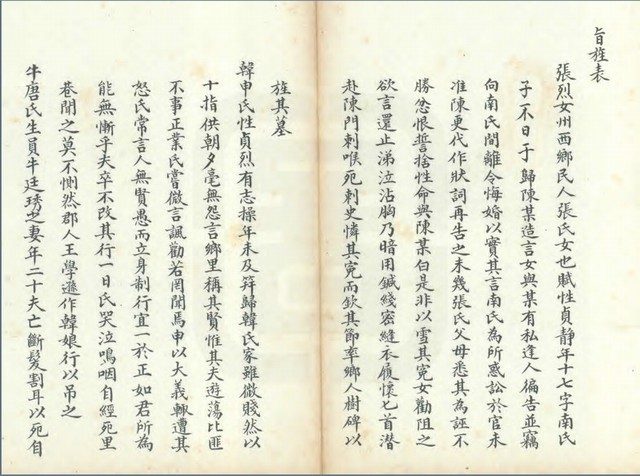 旨旌表
張烈女州西鄉民人張氏女也賦性貞靜年十七字南氏
子不日于歸陳某造言女與某有私逢人徧告並竊
向南氏間離令悔婚以實其言南氏為所惑訟於官未
准陳更代作狀詞再告之未幾張氏父母悉其為誣不
勝忿恨誓捨性命與陳某白是非以雪其寃女勸阻之
欲言還止涕泣沾胸乃暗用鍼綫密縫衣履懷匕首潛
赴陳門刺喉死刺史憐其寃而欽其節率鄉人樹碑以
旌其墓
韓申氏性貞烈有志操年未及笄歸韓氏家雖微賤然以
十指供朝夕毫無怨言鄉里稱其賢惟其夫遊蕩比匪
不事正業氏嘗微言諷勸若罔聞焉申以大義輒遭其
怒氏常言人無賢愚而立身制行宜一於正如君所為
能無慚乎夫卒不改其行一日氏哭泣嗚咽自經死里
巷聞之莫不惻然郡人王學遜作韓娘行以吊之
牛唐氏生員牛廷琇之妻年二十夫亡斷髮割耳以死自